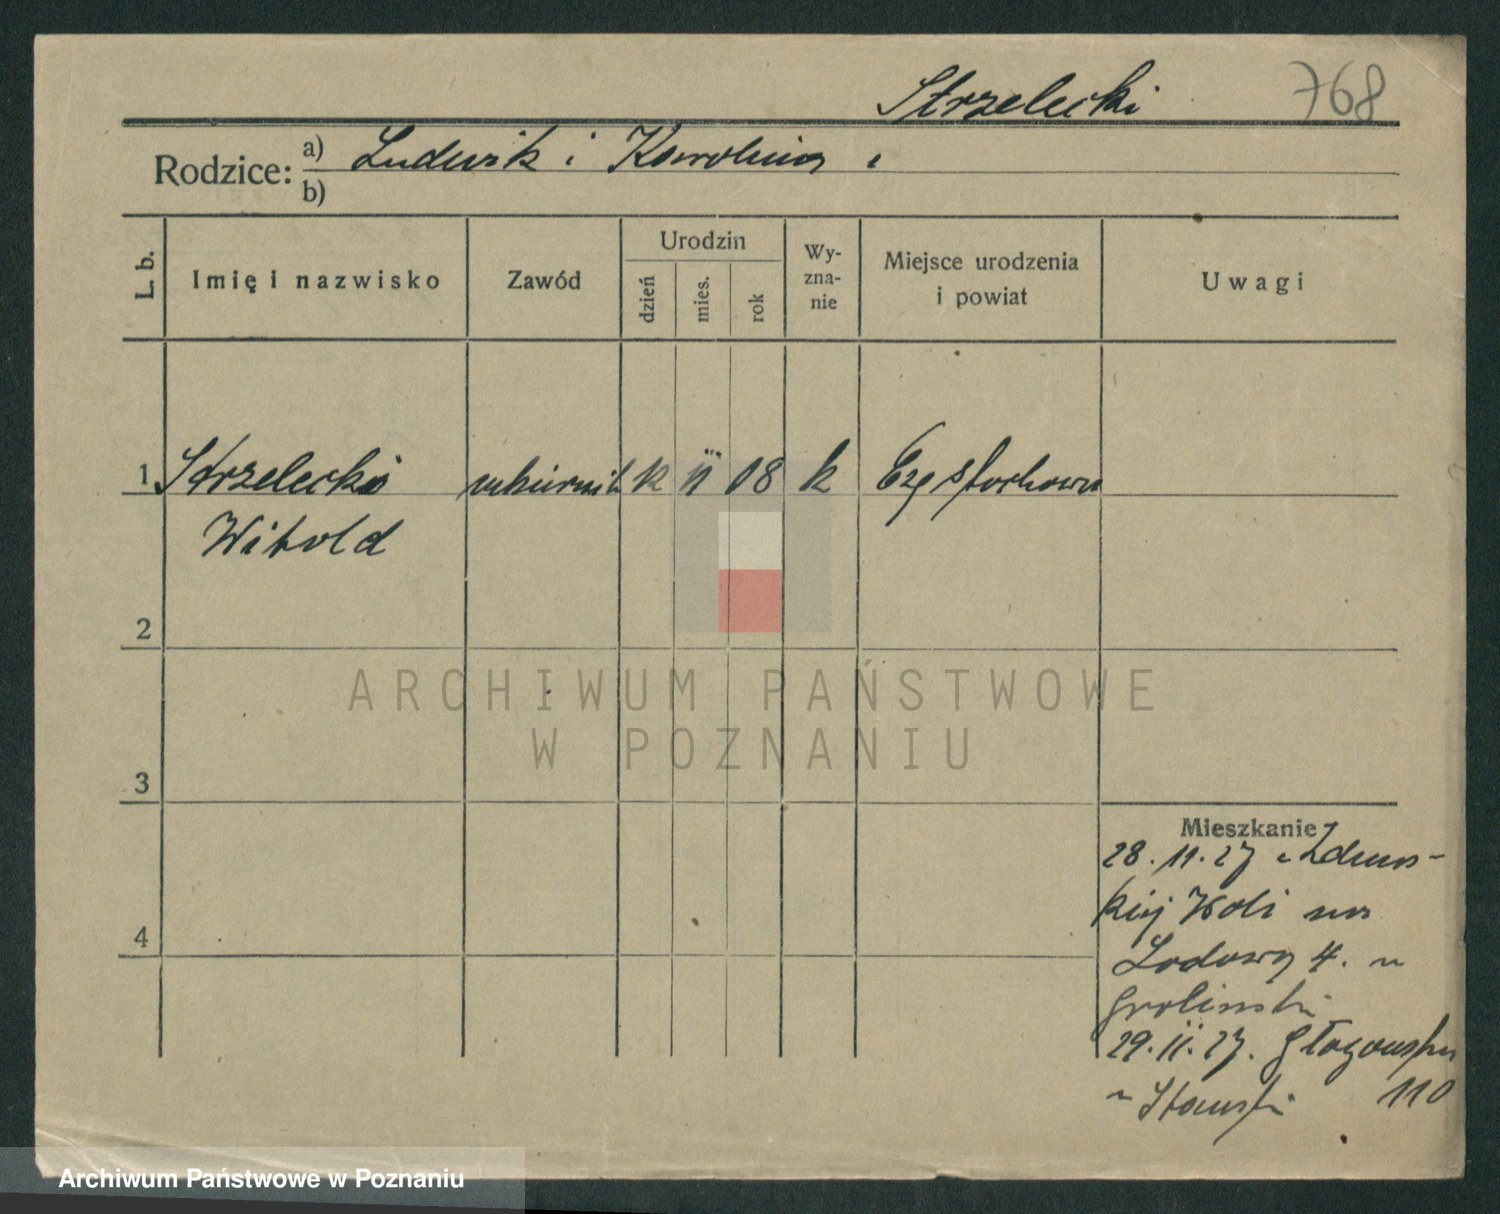 Strzelecki 768
Rodzice: a) Ludwik i Karolina
b)
L. b. Imię i nazwisko Zawód Urodzin dzień mies. rok Wyznanie Miejsce urodzenia i powiat Uwagi
1 Strzelecki 08 k Częstochowa
Witold
2
ARCHIWUM PAŃSTWOWE
W POZNANIU
3
Mieszkanie
28. 11. 27 z Zduńs-
kiej Woli na
4
Lodową 4. u
29. 11. 27. Głogowska
110
Archiwum Państwowe w Poznaniu